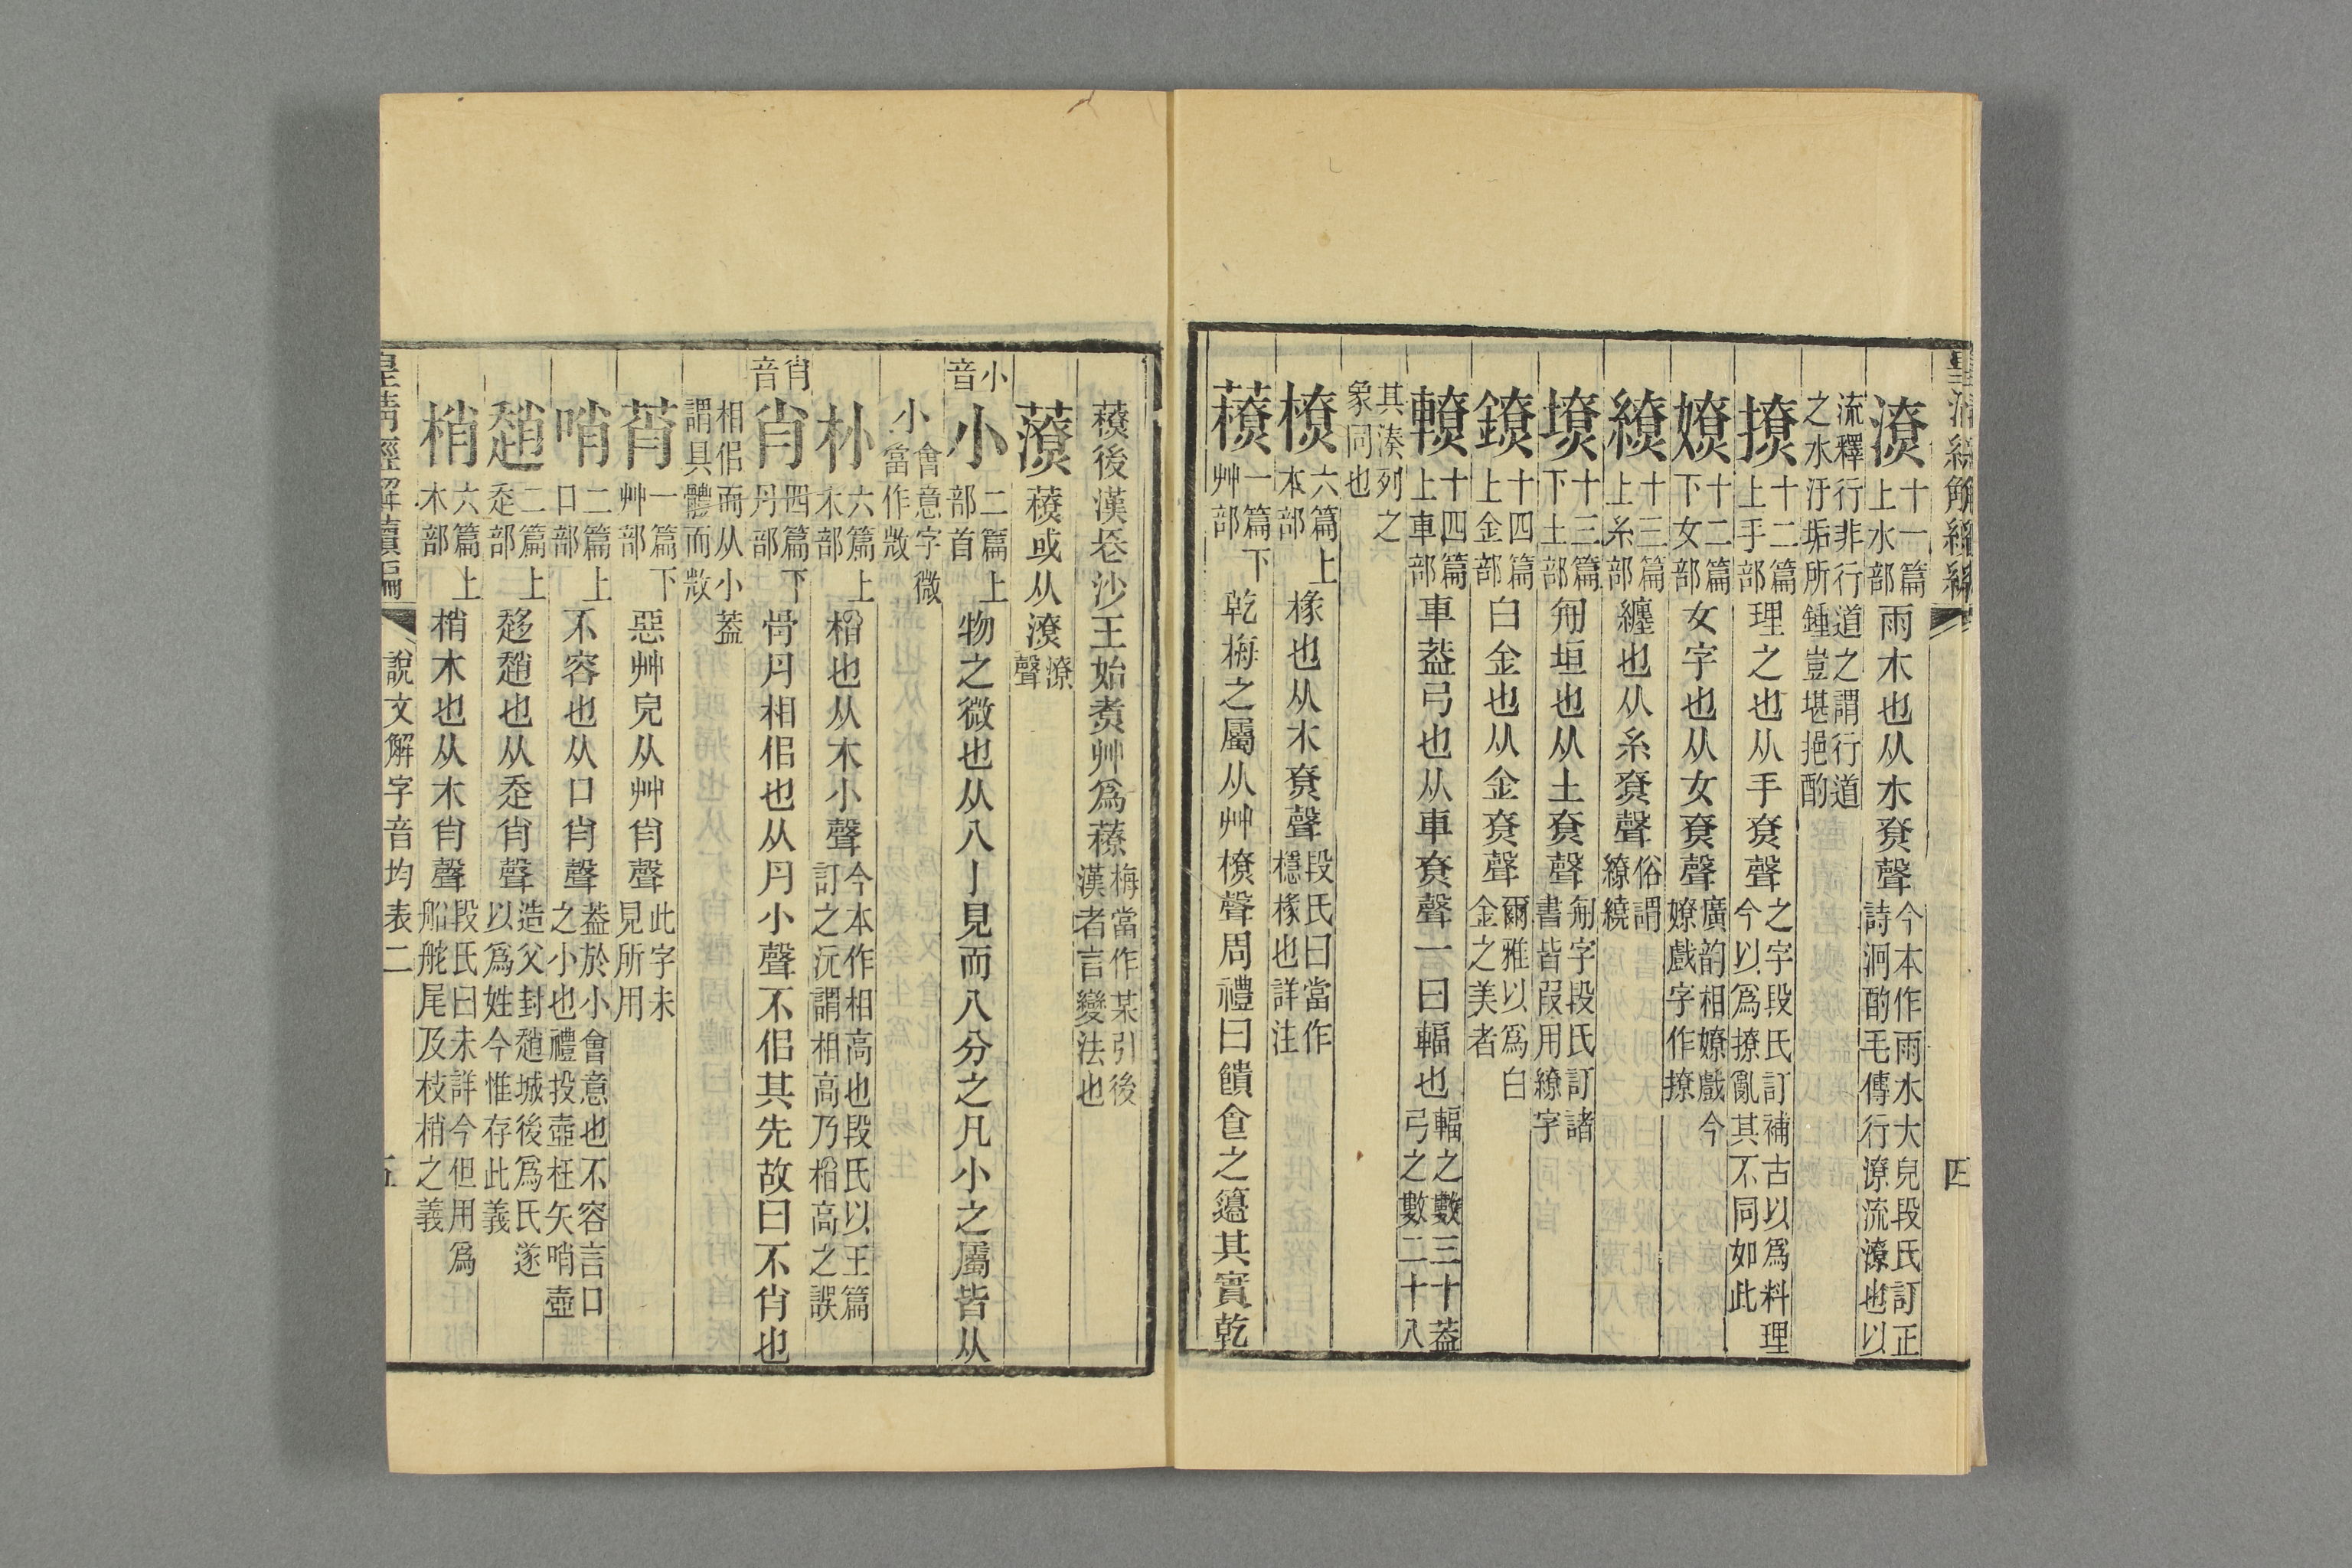 潦十一篇上水部雨水也从水尞聲今本作雨水大皃段氏訂正詩泂酌毛傳行潦流潦也以
流釋行非行道之謂行道之水汙垢所鍾豈堪挹酌
撩十二篇上手部理之也从手尞聲之字段氏訂補古以爲料理今以爲撩亂其不同如此
嫽十二篇下女部女字也从女尞聲廣韵相嫽戲今嫽戲字作撩
繚十三篇上糸部纏也从糸尞聲俗謂繚繞
墝十三篇下土部匔垣也从土尞聲匔字段氏訂諸書皆叚用繚字
鐐十四篇上金部白金也从金尞聲爾雅以爲白金之美者
轑十四篇上車部車葢弓也从車尞聲一曰輻也輻之數三十葢弓之數二十八
其湊列之象同也
橑六篇上木部椽也从木尞聲段氏曰當作檼椽也詳注
䕩一篇下艸部乾梅之屬从艸橑聲周禮曰饋食之籩其實乾
䕩後漢長沙王始煑艸爲䕩梅當作某引後漢者言變法也
䕩或从潦潦聲
小音小二篇上部首物之微也从八丨見而八分之凡小之屬皆从
小會意字微當作敳
朴六篇上木部榒也从木小聲今本作相高也段氏以玉篇訂之沅謂相高乃榒高之誤
肖音肖四篇下肉部骨肉相佀也从肉小聲不佀其先故曰不肖也
相佀而从小葢謂具體而敳
莦一篇下艸部惡艸皃从艸肖聲此字未見所用
哨二篇上口部不容也从口肖聲葢於小會意也不容言口之小也禮投壺枉矢哨壺
趙二篇上走部趍趙也从走肖聲造父封趙城後爲氏遂以爲姓今惟存此義
梢六篇上木部梢木也从木肖聲段氏曰未詳今但用爲船舵尾及枝梢之義
皇淸經解續編
說文解字音均表二
五
四